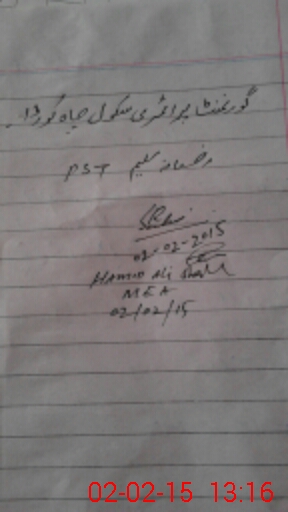 گورنمنٹ پرائمری سکول چاہ
رضیانہ سلیم PST
02-02-2015
HAMID Ali Shah
MEA
02/02/15
02-02-15 13:16